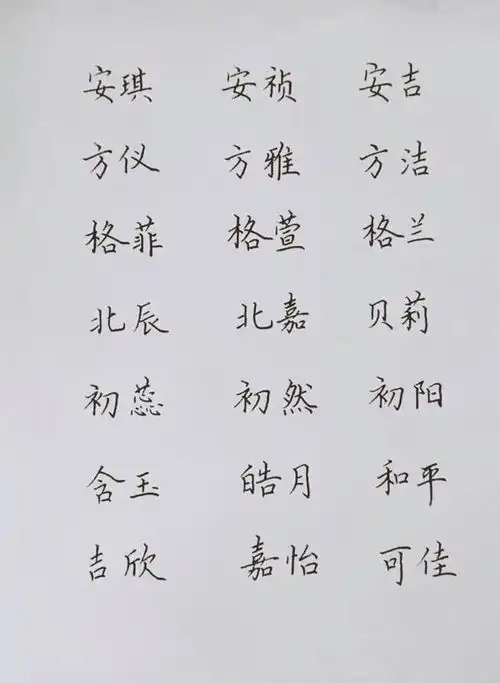 安琪 安祯 安吉
方仪 方雅 方洁
格菲 格萱 格兰
北辰 北嘉 贝莉
初蕊 初然 初阳
含玉 皓月 和平
吉欣 嘉怡 可佳